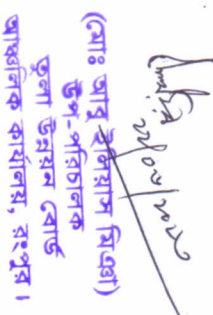 ২২/০২/২০২২
(মোঃ আবু ইলিয়াস মিঞা)
উপ-পরিচালক
তুলা উন্নয়ন বোর্ড
আঞ্চলিক কার্যালয়, রংপুর।